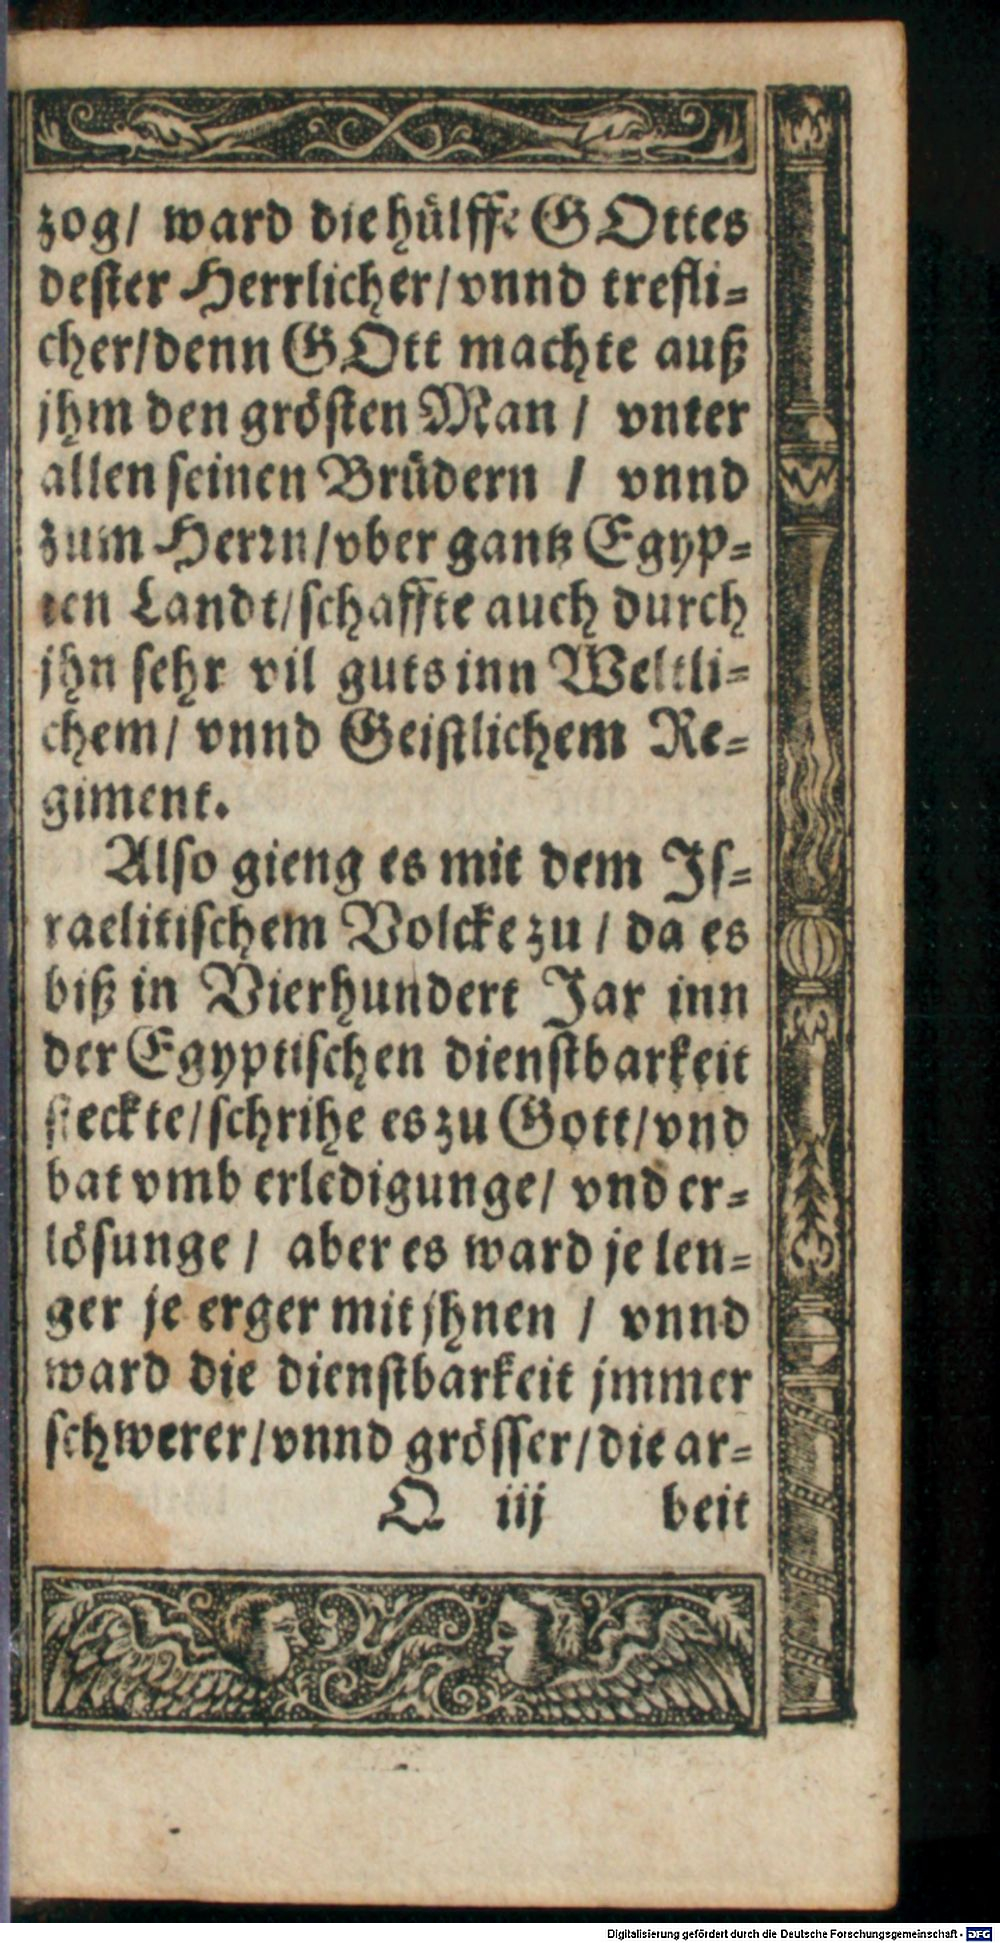 zog/ ward die hülffe GOttes
dester Herrlicher/vnnd trefli=
cher/denn GOtt machte auß
jhm den grösten Man / vnter
allen seinen Brüdern / vnnd
zum Herrn/vber gantz Egyp=
ten Landt/schaffte auch durch
jhn sehr vil guts inn Weltli=
chem/ vnnd Geistlichem Re=
giment.
Also gieng es mit dem Is=
raelitischem Volcke zu / da es
biß in Vierhundert Jar inn
der Egyptischen dienstbarkeit
steckte/schrihe es zu Gott/vnd
bat vmb erledigunge/ vnd er=
lösunge / aber es ward je len=
ger je erger mit jhnen / vnnd
ward die dienstbarkeit jmmer
schwerer/vnnd grösser/die ar=
Q iij beit
Digitalisierung gefördert durch die Deutsche Forschungsgemeinschaft - DFG